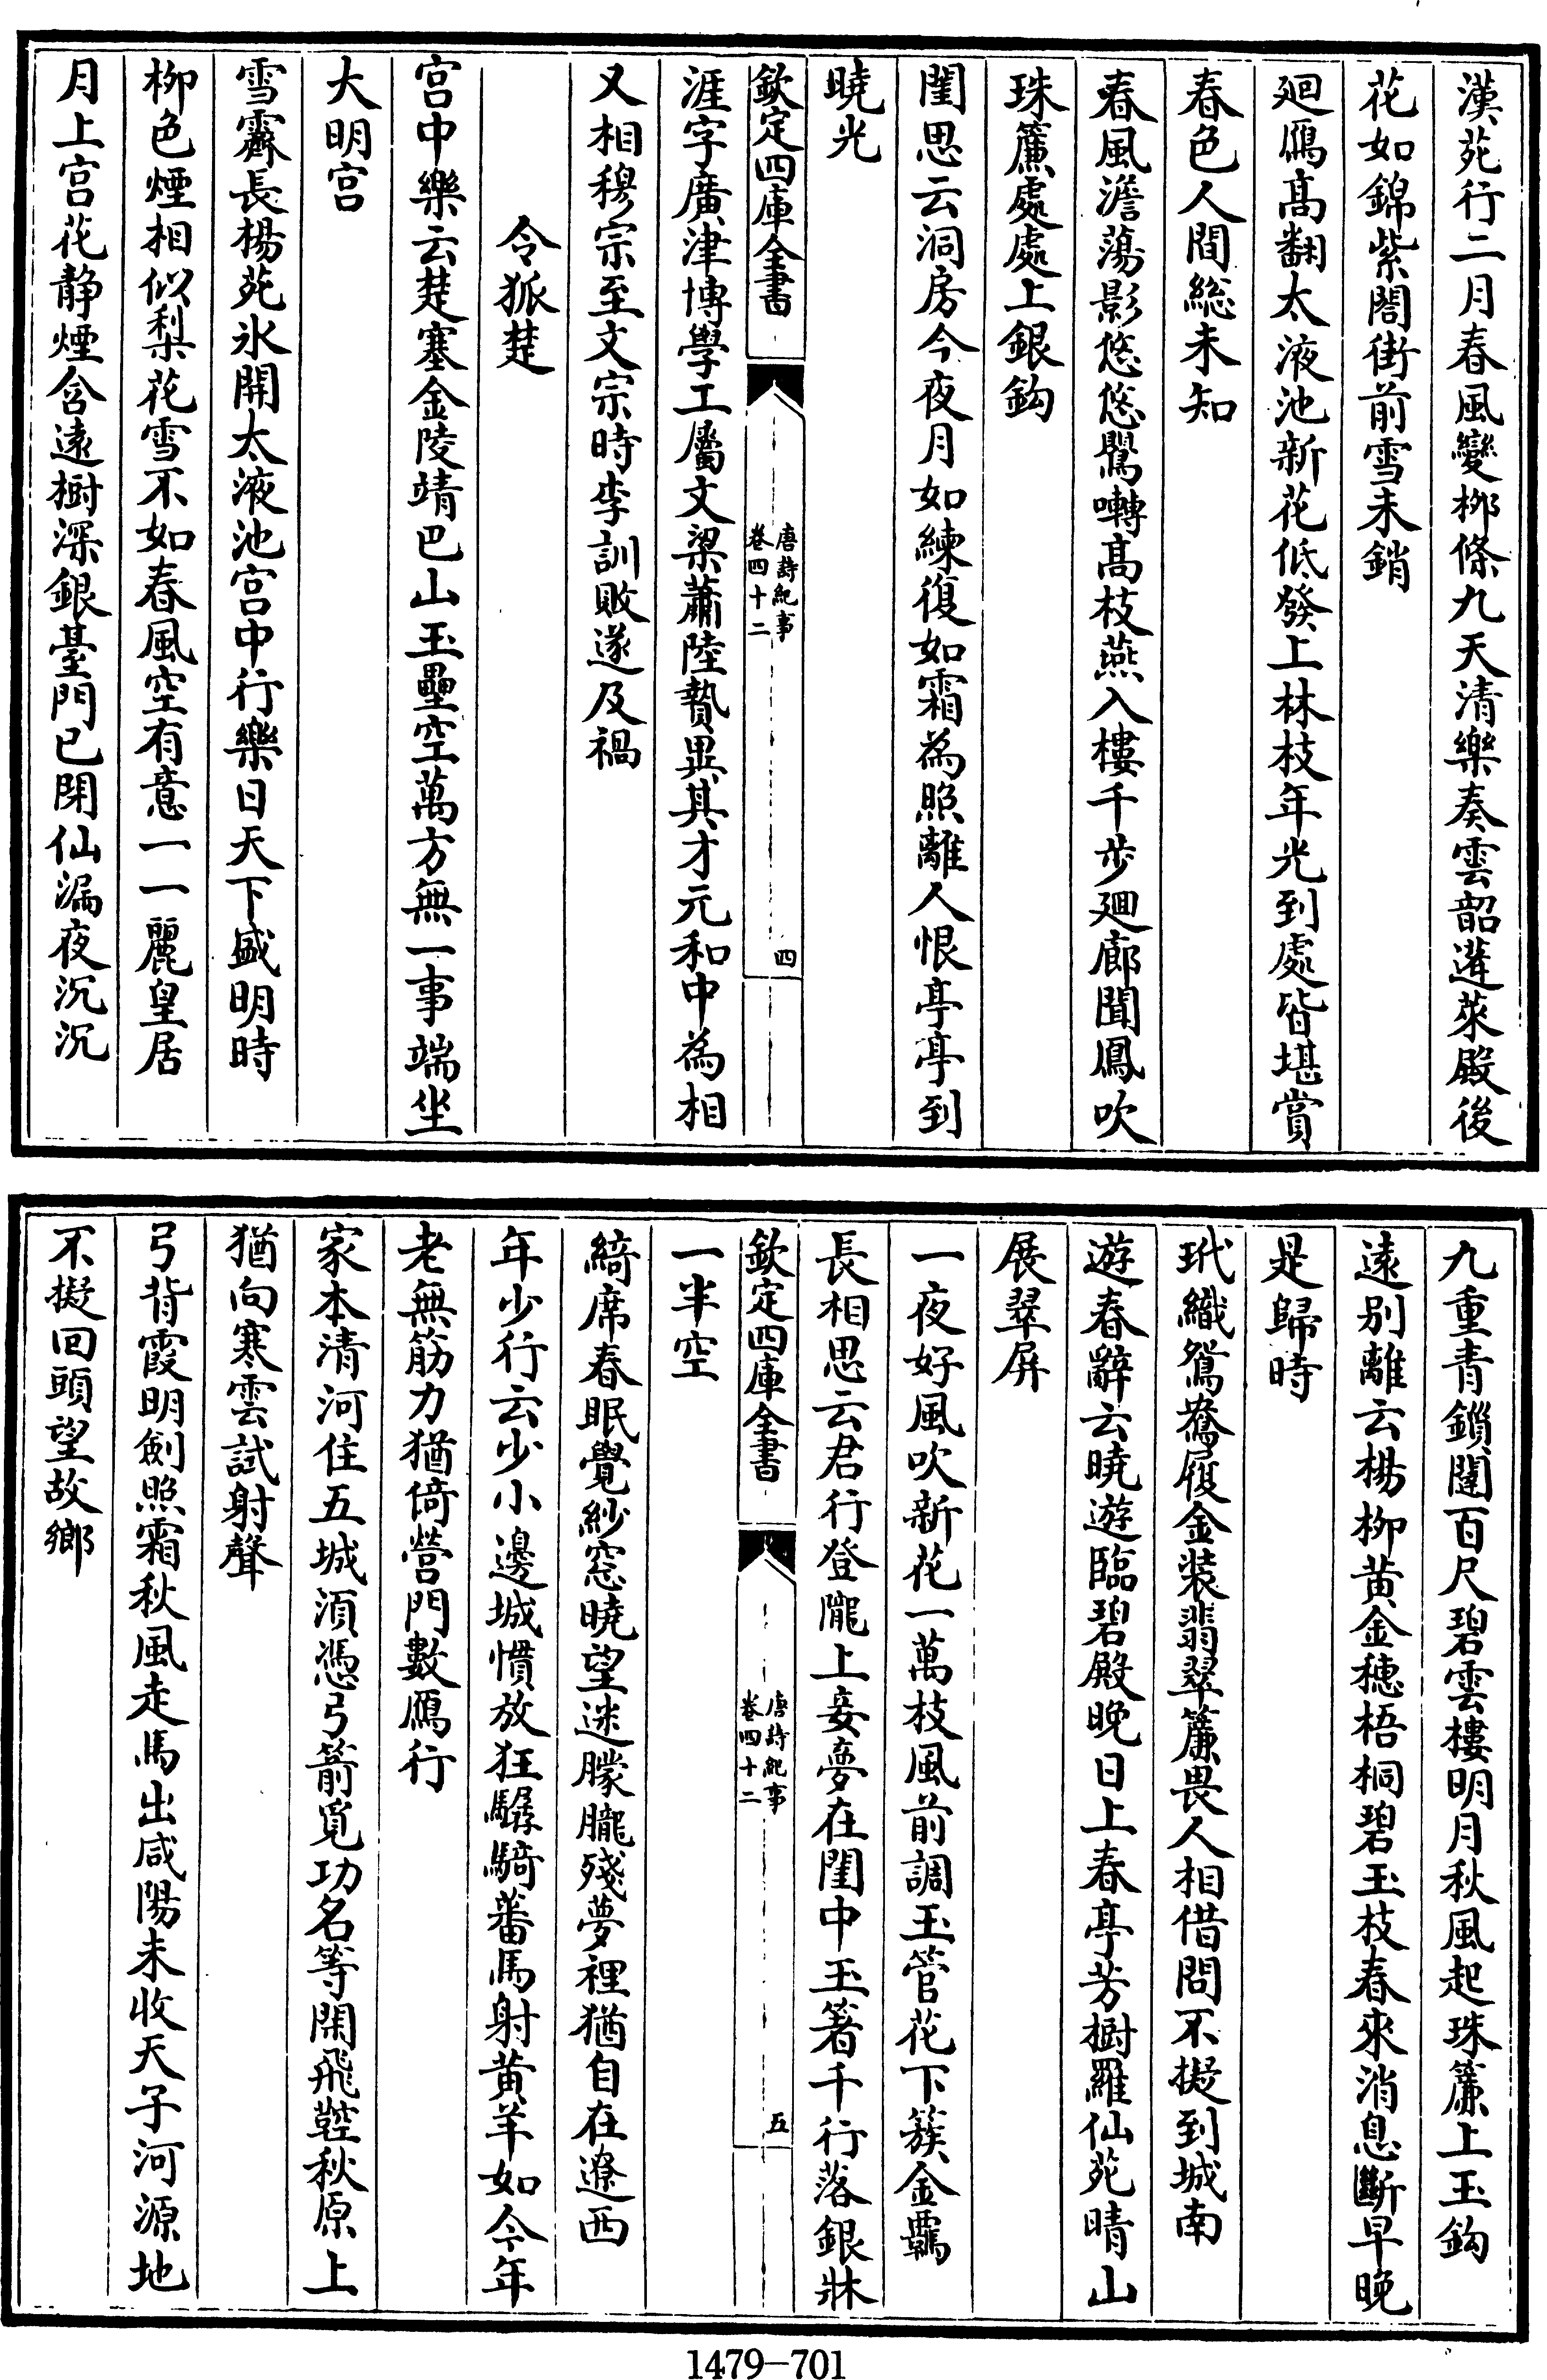 漢苑行二月春風變桞條九天清樂奏雲韶蓬萊殿後
花如錦紫閣街前雪未銷
廻鴈髙翻太液池新花低發上林枝年光到處皆堪賞
春色人間総未知
春風澹蕩影悠悠鶯囀髙枝燕入樓千步廻廊聞鳳吹
珠簾處處上銀鈎
閨思云洞房今夜月如練復如霜為照離人恨亭亭到
曉光
欽定四庫全書
唐詩紀事
卷四十二
四
涯字廣津博學工屬文梁蕭陸贄異其才元和中為相
又相穆宗至文宗時李訓敗遂及禍
令狐楚
宮中樂云楚塞金陵靖巴山玉壘空萬方無一事端坐
大明宮
雪霽長楊苑氷開太液池宮中行樂日天下盛明時
桞色煙相似梨花雪不如春風空有意一一麗皇居
月上宮花静煙含遠樹深銀臺門已閉仙漏夜沉沉
九重青鎖闥百尺碧雲樓明月秋風起珠簾上玉鈎
遠別離云楊桞黄金穂梧桐碧玉枝春來消息斷早晚
是歸時
玳織鴛鴦履金装翡翠簾畏人相借問不擬到城南
遊春辭云曉遊臨碧殿晚日上春亭芳樹羅仙苑晴山
展翠屏
一夜好風吹新花一萬枝風前調玉管花下簇金覊
長相思云君行登隴上妾夢在閨中玉箸千行落銀牀
欽定四庫全書
唐詩紀事
卷四十二
五
一半空
綺席春眠覺紗窓曉望迷朦朧殘夢裡猶自在遼西
年少行云少小邊城慣放狂驏騎蕃馬射黄羊如今年
老無筋力猶倚營門數鴈行
家本清河住五城須憑弓箭覓功名等閑飛鞚秋原上
猶向寒雲試射聲
弓背霞明劍照霜秋風走馬出咸陽未收天子河源地
不擬回頭望故鄉
1479-701